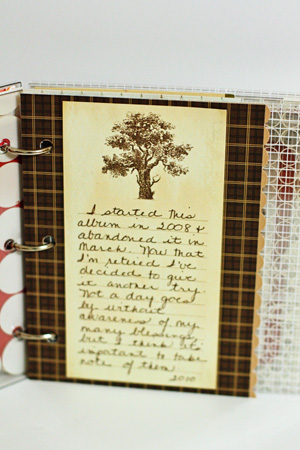 I started this
album in 2008 &
abandoned it in
March. Now that
I'm retired I've
decided to give
it another try.
Not a day goes
by without
awareness of my
many blessings,
but I think it's
important to take
note of them.
2010